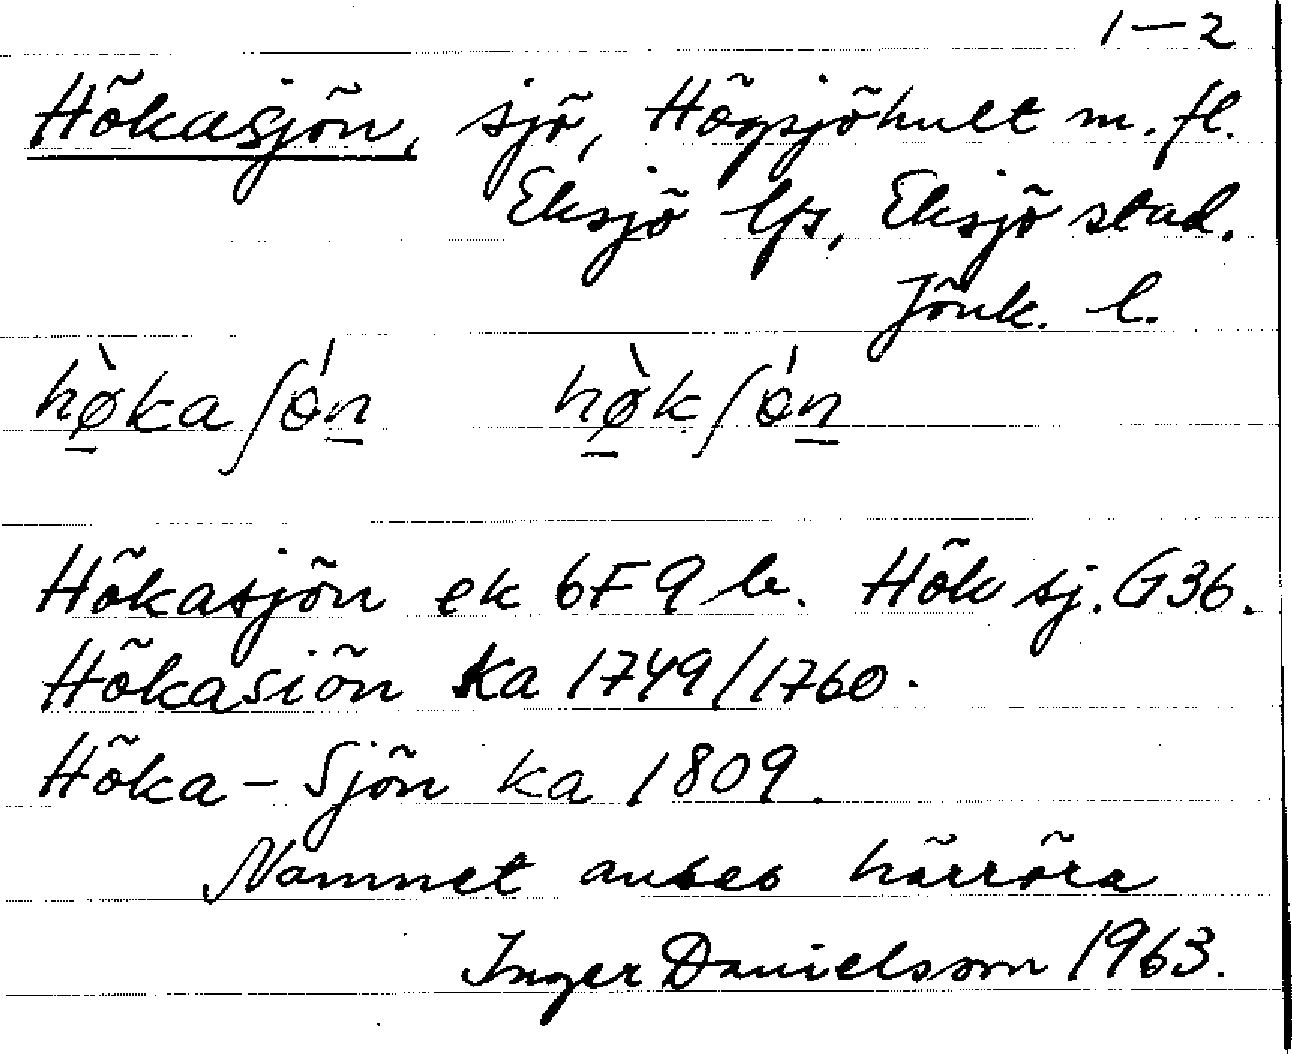 1–2
Hökasjön, sjö, Högsjöhult m. fl.
Eksjö lfs, Eksjö stad.
Jönk. l.
hø̀kaʃón hø̀kʃón
Hökasjön ek 6F 9 b. Hök sj. G36.
Hökasiön ka 1749/1760.
Höka-Sjön ka 1809.
Namnet anses härröra
Inger Danielsson 1963.